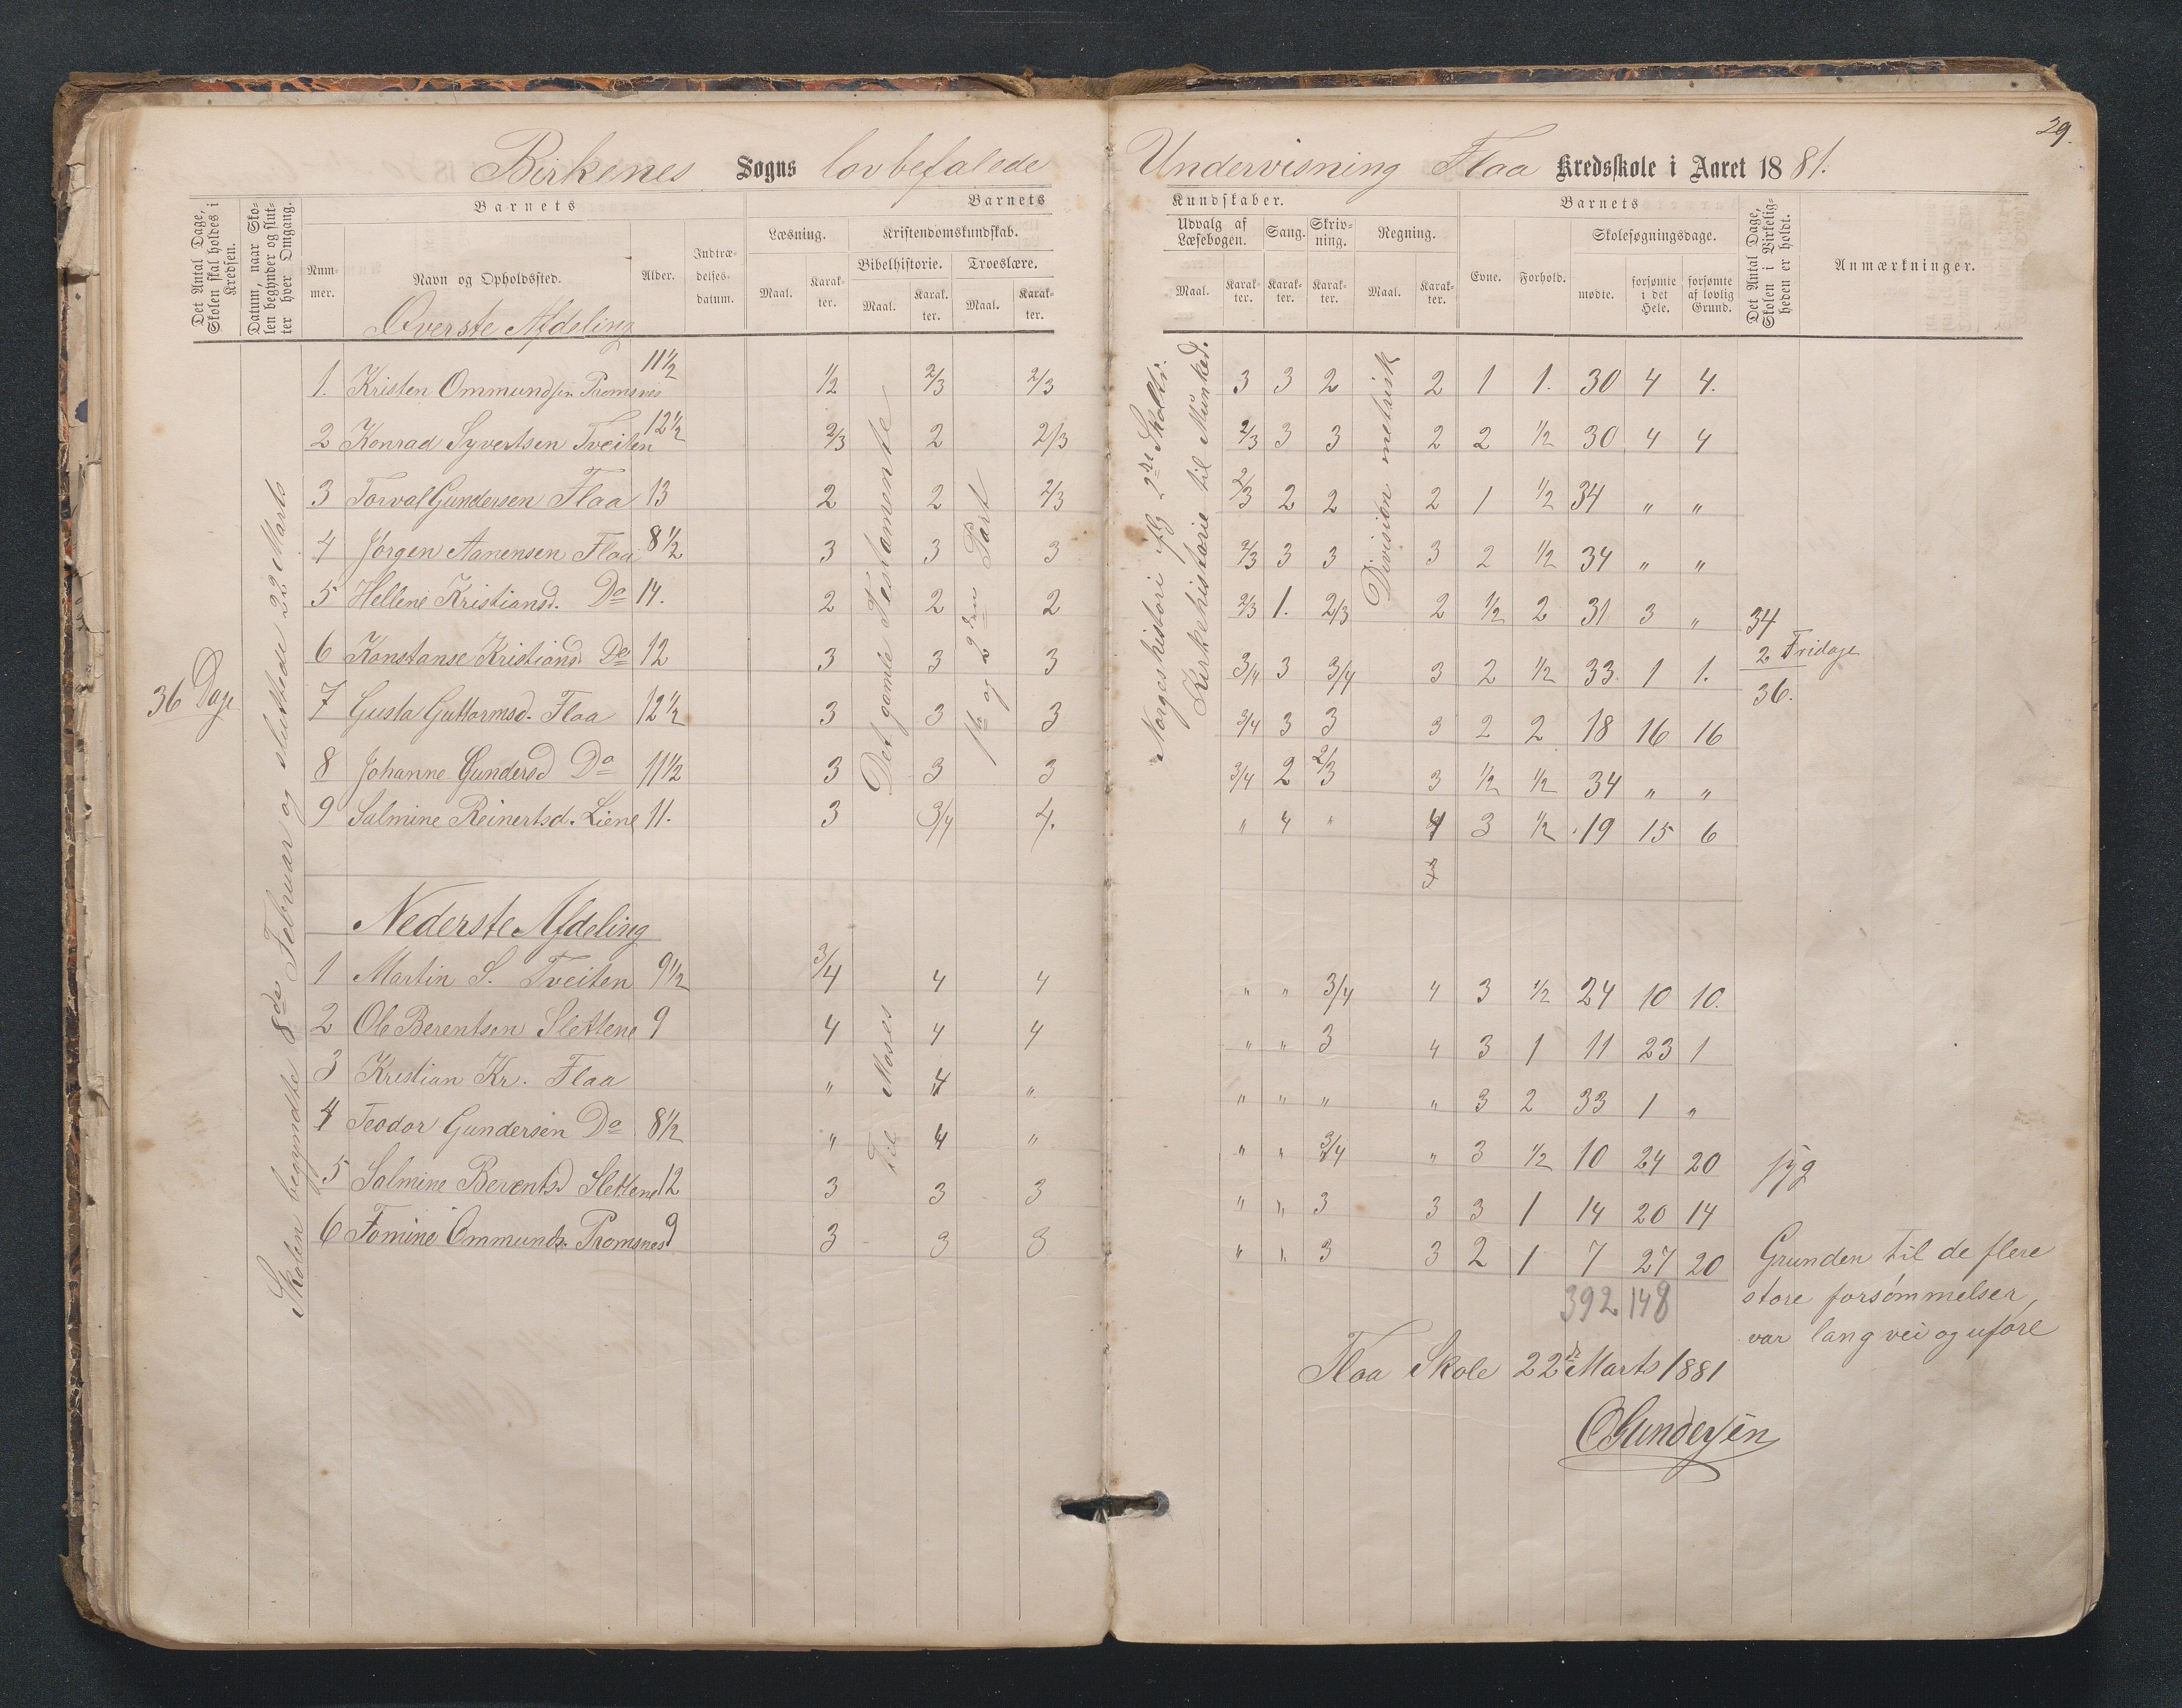 29.
Birkenes Sogns lovbefalede Undervisning Flaa Kredsskole i Aaret 1881.
Det Antal Dage, Skolen skal holdes i Kredsen.
Datum, naar Skolen begynder og slutter hver Omgang.
Barnets
Nummer.
Navn og Opholdssted.
Alder.
Indtrædelsesdatum.
Barnets
Læsning.
Maal. Karakter.
Kristendomskundskab.
Bibelhistorie. Troeslære.
Maal. Karakter. Maal. Karakter.
Kundskaber.
Udvalg af Læsebogen. Sang. Skrivning. Regning.
Maal. Karakter. Karakter. Karakter. Maal. Karakter.
Barnets
Evne. Forhold. Skolesøgningsdage.
mødte. forsømte i det Hele. forsømte af lovlig Grund.
Det Antal Dage, Skolen i Virkeligheden er holdt.
Anmærkninger.
Øverste Afdeling
36 Dage
Skolen begyndte 8de Februar og sluttede 22 Marts
Det gamle Testamente
1ste og 2den Part
Norgeshistori
Kirkehistorie til Munked.
Division metrisk
1. Kristen Ommundsen Promsnes 11½ 1/2 2/3 2/3 3 3 2 2 1 1. 30 4 4.
2 Konrad Syvertsen Tveiten 12½ 2/3 2 2/3 2/3 3 3 2 2 1/2 30 4 4
3 Torval Gundersen Flaa 13 2 2 2/3 2/3 2 2 2 1 1/2 34 " "
4 Jørgen Aanensen Flaa 8½ 3 3 3 2/3 3 3 3 2 1/2 34 " "
5 Hellene Kristiansd. Do 14. 2 2 2 2/3 1. 2/3 2 1/2 2 31 3 " 34
6 Konstanse Kristiansd. Do 12 3 3 3 3/4 3 3/4 3 2 1/2 33. 1 1. 2 Fridage
36.
7 Gusta Guttormsd. Flaa 12½ 3 3 3 3/4 3 3 3 2 2 18 16 16
8 Johanne Gundersd Do 11½ 3 3 3 3/4 2 2/3 3 1/2 1/2 34 " "
9 Salmine Reinertsd. Liene 11. 3 3/4 4. " 4 " 4 3 1/2 19 15 6
Nederste Afdeling
Til Moses
1 Martin S. Tveiten 9½ 3/4 4 4 " " 3/4 4 3 1/2 24 10 10.
2 Ole Berentsen Slettene 9 4 4 4 " " 3 4 3 1 11 23 1
3 Kristian Kr. Flaa " 4 " " " " " 3 2 33 1 "
4 Teodor Gundersen Do 8½ " 4 " " " 3/4 " 3 1/2 10 24 20 syg
5 Salmine Berentsd Slettene 12 3 3 3 " " 3 3 3 1 14 20 14
6 Tomine Ommunds. Promsnes 9 3 3 3 " " 3 3 2 1 7 27 20
392 148
Grunden til de flere
store forsömmelser,
var lang vei og uføre
Flaa Skole 22de Marts 1881
O Gundersen